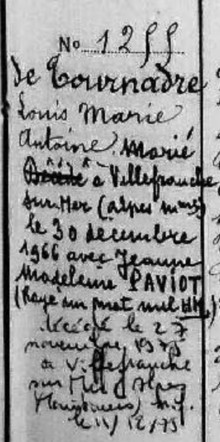 No 1255
de Tournadre
Louis Marie
Antoine. Marié
Décédé à Villefranche
sur-Mer (Alpes Mmes)
le 30 décembre
1966 avec Jeanne
Madeleine PAVIOT
(Rayé un mot nul HM.)
Décédé le 27
novembre 1975
à Villefranche
sur Mer (Alpes
Maritimes)
le 11/12/75